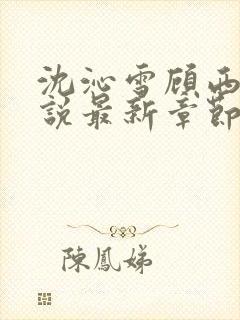 沈沁雪顾西
說最新章節
陳鳳娣